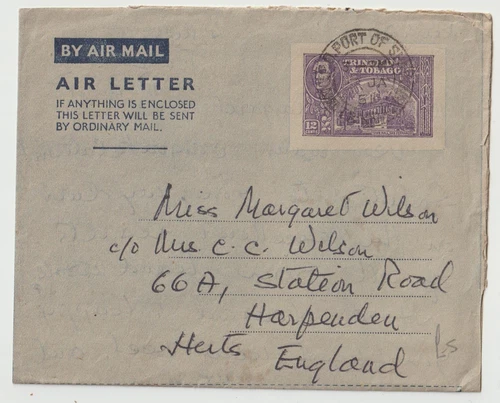 BY AIR MAIL
AIR LETTER
IF ANYTHING IS ENCLOSED
THIS LETTER WILL BE SENT
BY ORDINARY MAIL.
PORT OF S
TRINIDAD
& TOBAGO
JA
12
Miss Margaret Wilson
c/o Mrs C. C. Wilson
66A, Station Road
Harpenden
Herts England